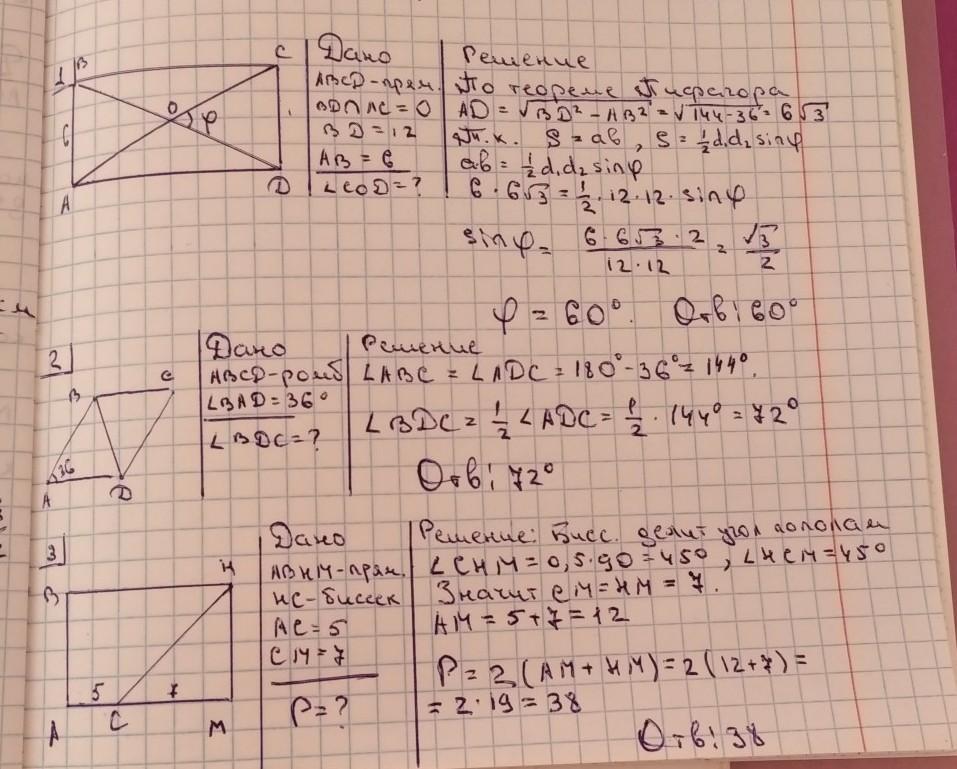 1
B C
O φ
6
A D
Дано
ABCD-прям.
BD∩AC=O
BD=12
AB=6
∠COD=?
Решение
По теореме Пифагора
AD = √BD² - AB² = √144-36 = 6√3
Т.к. S=ab, S=½d₁d₂sinφ
ab=½d₁d₂sinφ
6·6√3=½·12·12·sinφ
sinφ= 6·6√3·2 / 12·12 = √3/2
φ = 60°. Отв: 60°
2
B C
36
A D
Дано
ABCD-ромб
∠BAD=36°
∠BDC=?
Решение
∠ABC = ∠ADC = 180°-36°=144°.
∠BDC= ½ ∠ADC = ½ · 144° = 72°
Отв: 72°
3
B H
5 7
A C M
Дано
ABHM-прям.
HC-биссек
AC=5
CM=7
P=?
Решение: Бисс. делит угол пополам
∠CHM=0,5·90=45°, ∠HCM=45°
Значит CM=HM=7.
AM = 5+7=12
P=2(AM+HM)=2(12+7)=
=2·19=38
Отв: 38
см